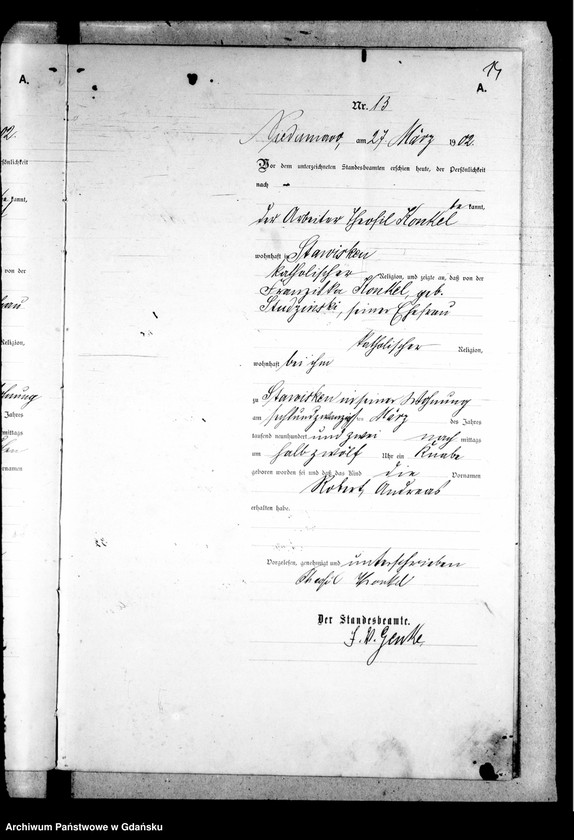 14
A.
A.
Nr. 13
am 27 März 1902.
Vor dem unterzeichneten Standesbeamten erschien heute, der Persönlichkeit
nach be kannt,
der Arbeiter Theofil Konkel
wohnhaft in Stawisken
katholischer Religion, und zeigte an, daß von der
Franziska Konkel, geb.
Studzinski, seiner Ehefrau
katholischer Religion,
wohnhaft bei ihm
zu Stawisken in seiner Wohnung
am sechsundzwanzigsten März des Jahres
tausend neunhundert und zwei nach mittags
um halb zwölf Uhr ein Knabe
geboren worden sei und daß das Kind die Vornamen
Robert Andreas
erhalten habe.
Vorgelesen, genehmigt und unterschrieben
Theofil Konkel
Der Standesbeamte.
J. V. Genke
02.
sönlichkeit
kannt,
von der
Religion,
Jahres
mittags
ornamen
Archiwum Państwowe w Gdańsku